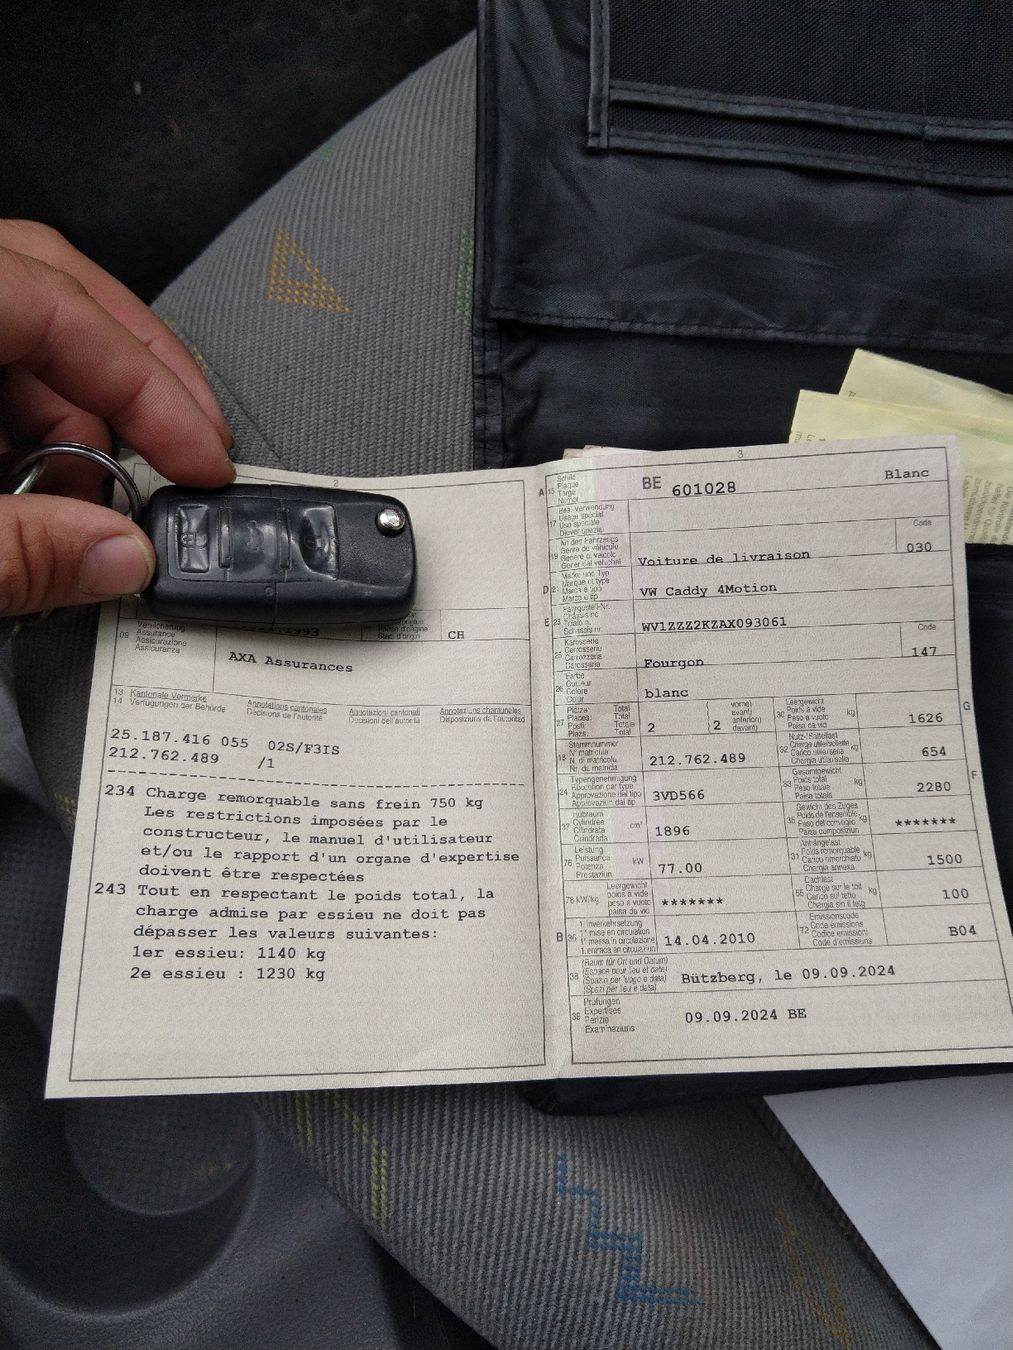 2
.1993
CH
Versicherung
09 Assurance
Assicurazione
Assicuranza
AXA Assurances
13 Kantonale Vermerke Annotations cantonales Annotazioni cantonali Annotaziuns chantunalas
14 Verfügungen der Behörde Décisions de l'autorité Decisioni dell'autorità Disposiziuns da l'autoritad
25.187.416 055 02S/F3IS
212.762.489 /1
234 Charge remorquable sans frein 750 kg
Les restrictions imposées par le
constructeur, le manuel d'utilisateur
et/ou le rapport d'un organe d'expertise
doivent être respectées
243 Tout en respectant le poids total, la
charge admise par essieu ne doit pas
dépasser les valeurs suivantes:
1er essieu: 1140 kg
2e essieu : 1230 kg
3
A 15 Schild
Plaque
Targa
Numer
BE 601028 Blanc
17 Bes. Verwendung
Usage spécial
Uso speciale
Diever spezial
19 Art des Fahrzeugs
Genre de véhicule
Genere di veicolo
Gener dal vehichel
Voiture de livraison
Code
030
D 21 Marke und Typ
Marque et type
Marca e tipo
Marca e tip
VW Caddy 4Motion
E 23 Fahrgestell-Nr.
Châssis no
Telaio n.
Schassis nr.
WV1ZZZ2KZAX093061
25 Karosserie
Carrosserie
Carrozzeria
Carossaria
Fourgon
Code
147
26 Farbe
Couleur
Colore
Colur
blanc
27 Plätze: Total
Places: Total
Posti: Totale
Plazs: Total
2
vorne)
avant)
anteriori)
davant)
2
30 Leergewicht
Poids à vide
Peso a vuoto
Paisa da vid
kg
1626
G
18 Stammnummer
N° matricule
N. di matricola
Nr. da matricla
212.762.489
32 Nutz-/Sattellast
Charge utile/sellette
Carico utile/sella
Chargia utila/sella
kg
654
24 Typengenehmigung
Réception par type
Approvazione del tipo
Approvaziun dal tip
3VD566
33 Gesamtgewicht
Poids total
Peso totale
Paisa totala
kg
2280
F
37 Hubraum
Cylindrée
Cilindrata
Cilindrada
cm³
1896
35 Gewicht des Zuges
Poids de l'ensemble
Peso del convoglio
Paisa cumposiziun
kg
*******
76 Leistung
Puissance
Potenza
Prestaziun
kW
77.00
31 Anhängelast
Poids remorquable
Carico rimorchiato
Chargia annexa
kg
1500
78 kW/kg
Leergewicht
poids à vide
peso a vuoto
paisa da vid
*******
55 Dachlast
Charge sur le toit
Carico sul tetto
Chargia sin il tetg
kg
100
B 36 1. Inverkehrsetzung
1re mise en circulation
1a messa in circolazione
1. entrada en circulaziun
14.04.2010
72 Emissionscode
Code émissions
Codice emissioni
Code d'emissiuns
B04
38 (Raum für Ort und Datum)
(Espace pour lieu et date)
(Spazio per luogo e data)
(Spazi per lieu e data)
Bützberg, le 09.09.2024
39 Prüfungen
Expertises
Perizie
Examinaziuns
09.09.2024 BE